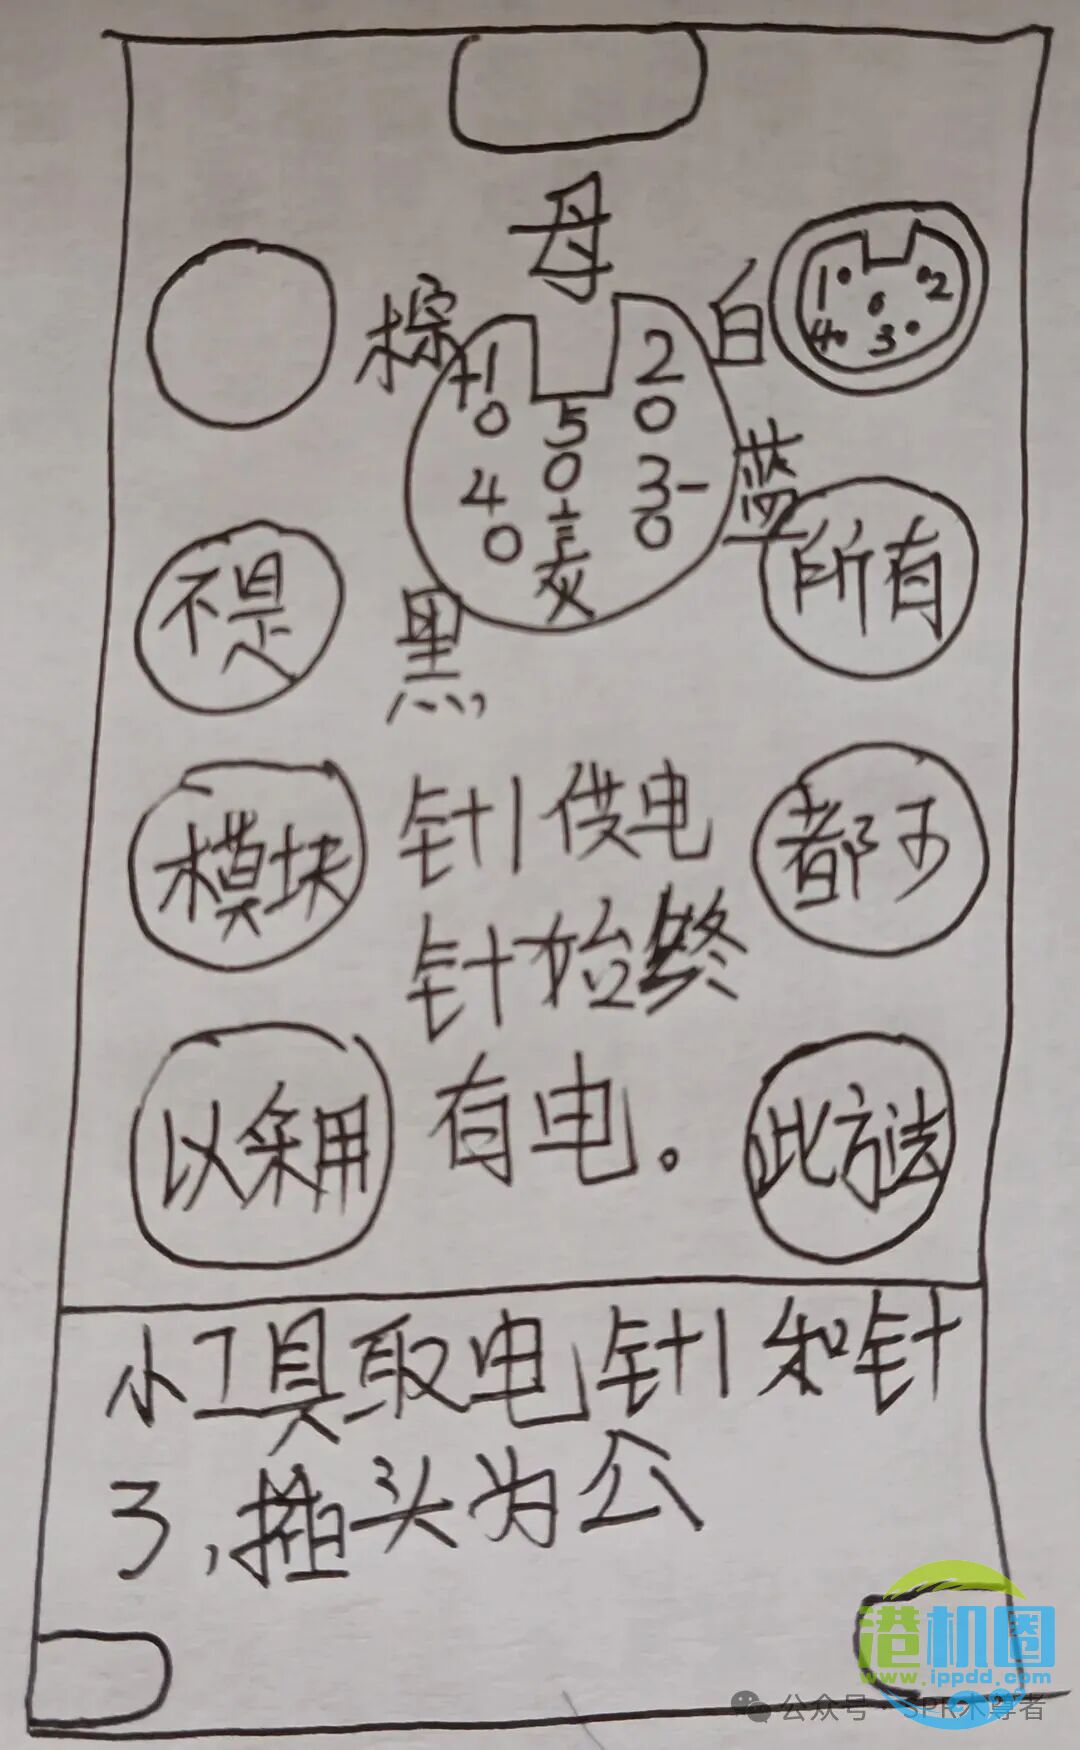 母
棕
白
+1 2
5
4 3-
黄
蓝
黑
1 2
4 3
不是
所有
模块
都可
以采用
此方法
针1供电
针始终
有电。
小工具取电针1和针
3,插头为公
港机圈
www.ippdd.com
公众号·SPR木尊者